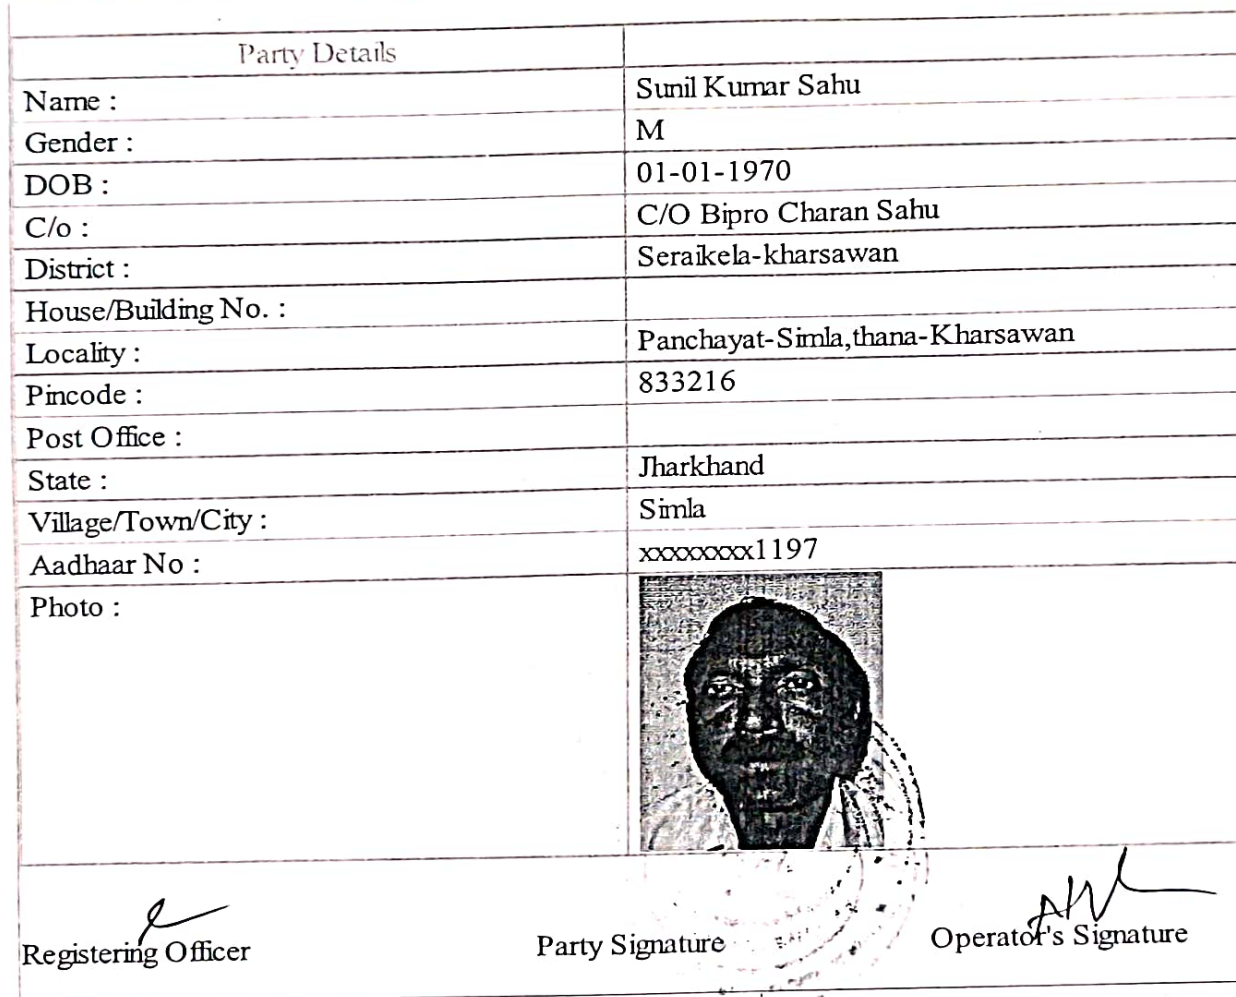 Party Details
Name : Sunil Kumar Sahu
Gender : M
DOB : 01-01-1970
C/o : C/O Bipro Charan Sahu
District : Seraikela-kharsawan
House/Building No. :
Locality : Panchayat-Simla,thana-Kharsawan
Pincode : 833216
Post Office :
State : Jharkhand
Village/Town/City : Simla
Aadhaar No : xxxxxxxx1197
Photo :
Registering Officer Party Signature Operator's Signature